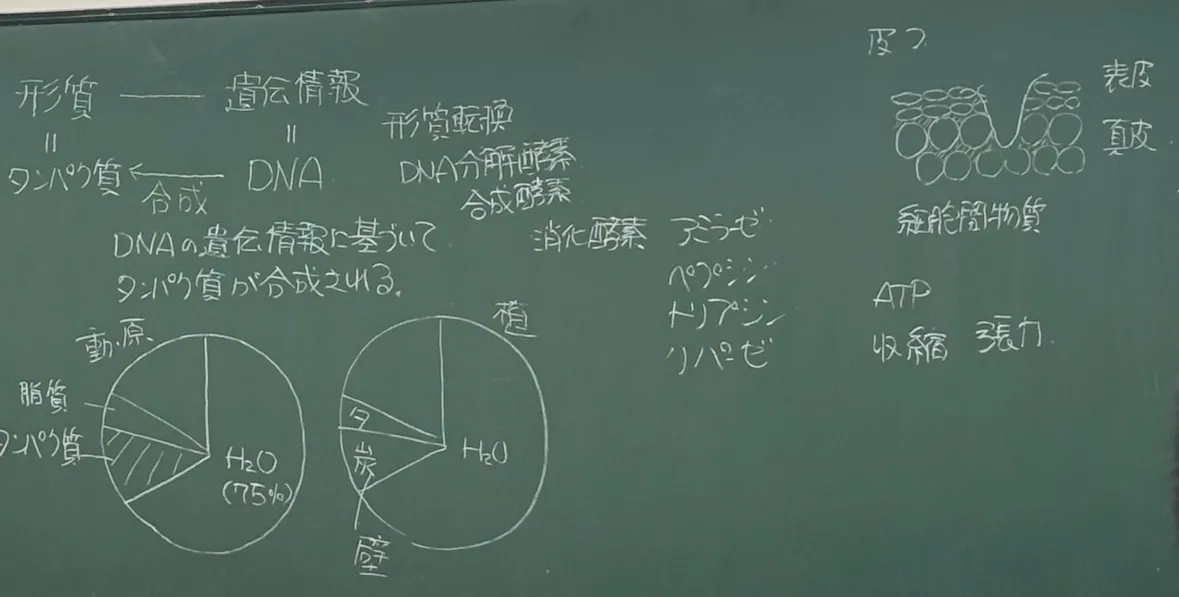 形質 — 遺伝情報
= =
タンパク質 ← DNA
合成
DNAの遺伝情報に基づいて
タンパク質が合成される。
形質転換
DNA分解酵素
合成酵素
消化酵素 アミラーゼ
ペプシン
トリプシン
リパーゼ
動.原.
脂質
タンパク質
H₂O
(75%)
植
タ
炭
H₂O
壁
皮フ
表皮
真皮
細胞間物質
ATP
収縮 張力